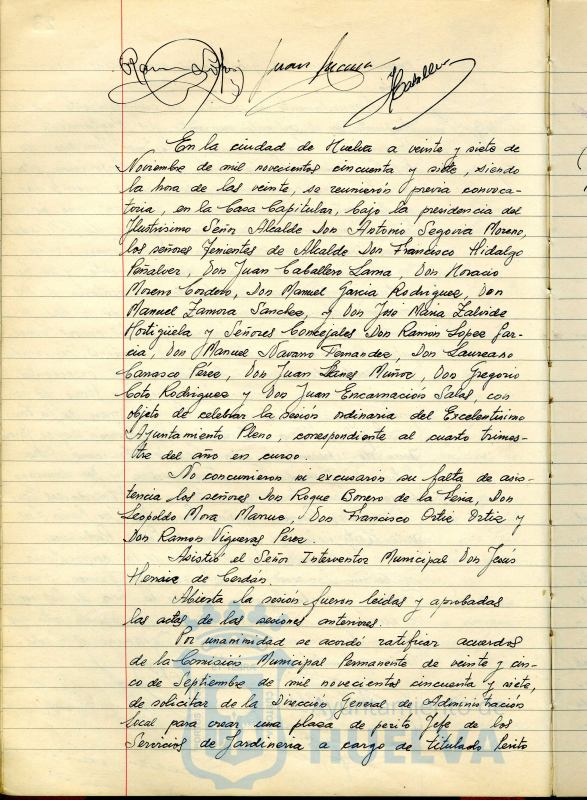 Ramon López Juan Encarna JCaballero
En la ciudad de Huelva a veinte y siete de
Noviembre de mil novecientos cincuenta y siete, siendo
la hora de las veinte, se reunieron previa convoca-
toria, en la Casa Capitular, bajo la presidencia del
Ilustrisimo Señor Alcalde Don Antonio Segovia Moreno,
los señores Tenientes de Alcalde Don Francisco Hidalgo
Peñalver, Don Juan Caballero Lama, Don Horacio
Moreno Cordero, Don Manuel Garcia Rodriguez, Don
Manuel Zamora Sanchez, y Don Jose Maria Zalvide
Hortigüela y Señores Concejales Don Ramón Lopez Gar-
cia, Don Manuel Navarro Fernandez, Don Laureano
Carrasco Pérez, Don Juan Llanes Muñoz, Don Gregorio
Coto Rodriguez y Don Juan Encarnación Salas, con
objeto de celebrar la sesión ordinaria del Excelentisimo
Ayuntamiento Pleno, correspondiente al cuarto trimes-
tre del año en curso.
No concurrieron ni excusaron su falta de asis-
tencia los señores Don Roque Borrero de la Feria, Don
Leopoldo Mora Manue, Don Francisco Ortiz Ortiz y
Don Ramon Vigueras Pérez.
Asistió el Señor Interventor Municipal Don Jesús
Hernaiz de Cerdán.
Abierta la sesión fueron leidas y aprobadas
las actas de las sesiones anteriores.
Por unanimidad se acordó ratificar acuerdos
de la Comisión Municipal Permanente de veinte y cin-
co de Septiembre de mil novecientos cincuenta y siete,
de solicitar de la Dirección General de Administración
Local para crear una plaza de perito Jefe de los
Servicios de Jardineria a cargo de titulado Perito
HUELVA